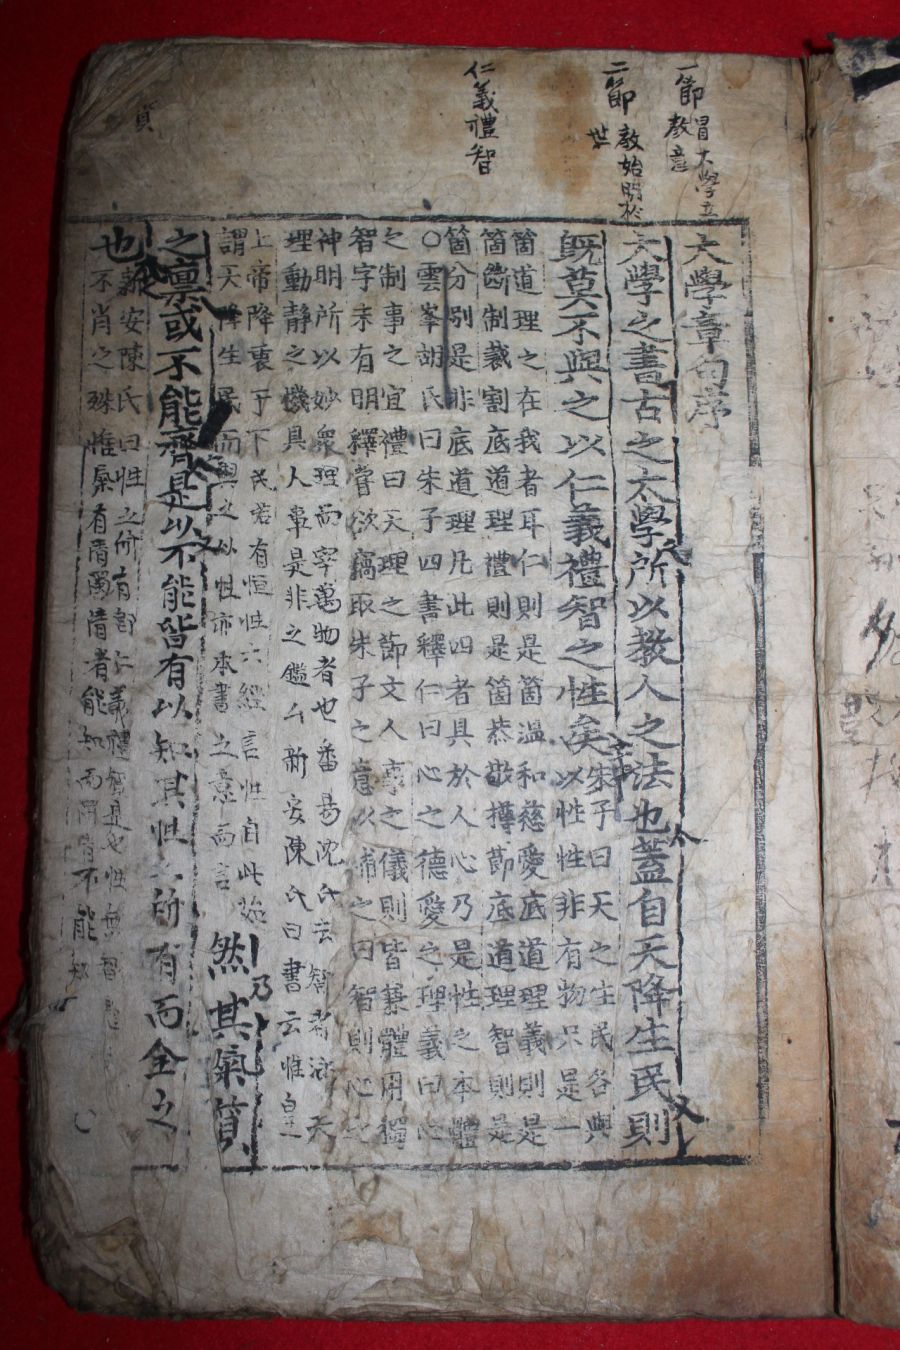 一節冒大學立
教意
二節教始明於
世
仁義禮智
大學章句序
大學之書古之太學所以教人之法也蓋自天降生民則
既莫不與之以仁義禮智之性矣
朱子曰天之生民各與
以性性非有物只是一
箇道理之在我者耳仁則是箇溫和慈愛底道理義則是
箇斷制裁割底道理禮則是箇恭敬撙節底道理智則是
箇分別是非底道理凡此四者具於人心乃是性之本體
○雲峯胡氏曰朱子四書釋仁曰心之德愛之理義曰心
之制事之宜禮曰天理之節文人事之儀則皆兼體用獨
智字未有明釋嘗欲竊取朱子之意以補之曰智則心之
神明所以妙衆理而宰萬物者也番昜沈氏云智者涵天
理動靜之機具人事是非之鑑 新安陳氏曰書云惟皇
上帝降衷于下民若有恒性六經言性自此始
謂天降生民而與之以性亦本書之意而言
然其氣質
之稟或不能齊是以不能皆有以知其性之所有而全之
也
新安陳氏曰性之所有卽仁義禮智是也性無智
不肖之殊惟氣有淸濁淸者能知而濁者不能知